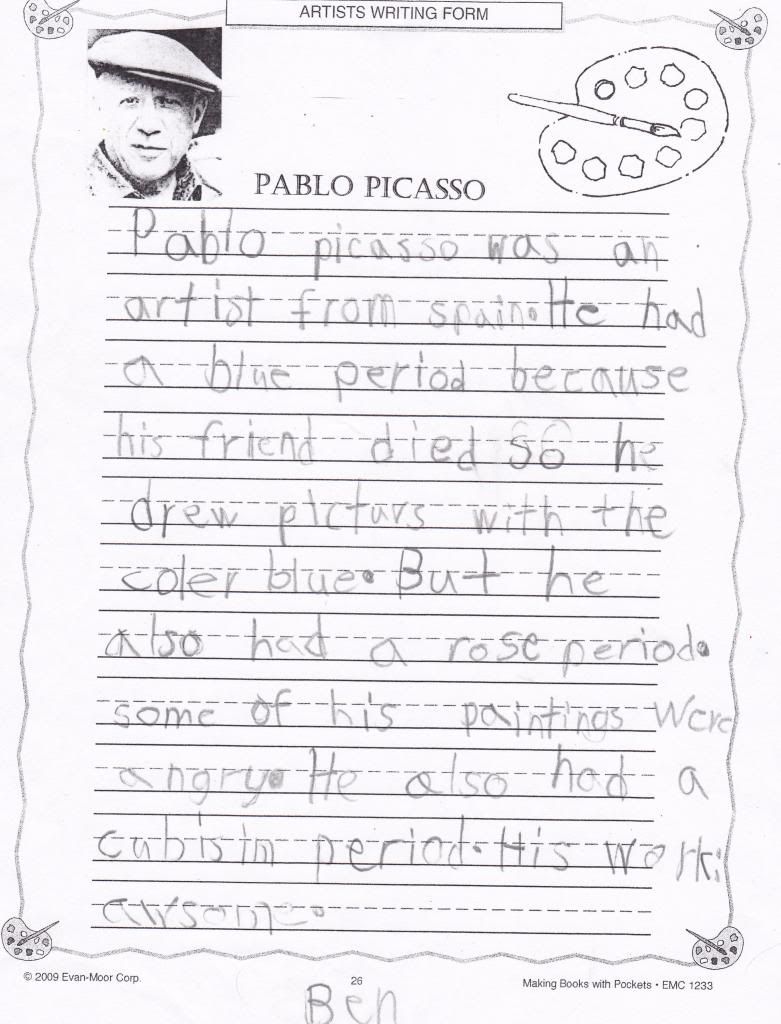 ARTISTS WRITING FORM
PABLO PICASSO
Pablo picasso was an
artist from spain. He had
a blue period because
his friend died so he
drew picturs with the
coler blue. But he
also had a rose period.
some of his paintings were
angry. He also had a
cubisim period. His work
awsome.
© 2009 Evan-Moor Corp.
26
Making Books with Pockets • EMC 1233
Ben